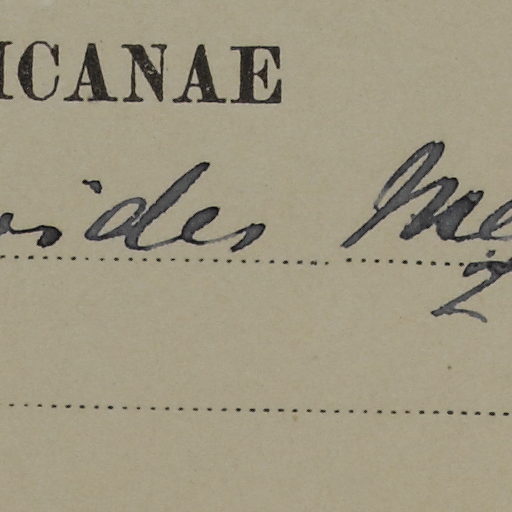 ICANAE
oides Me